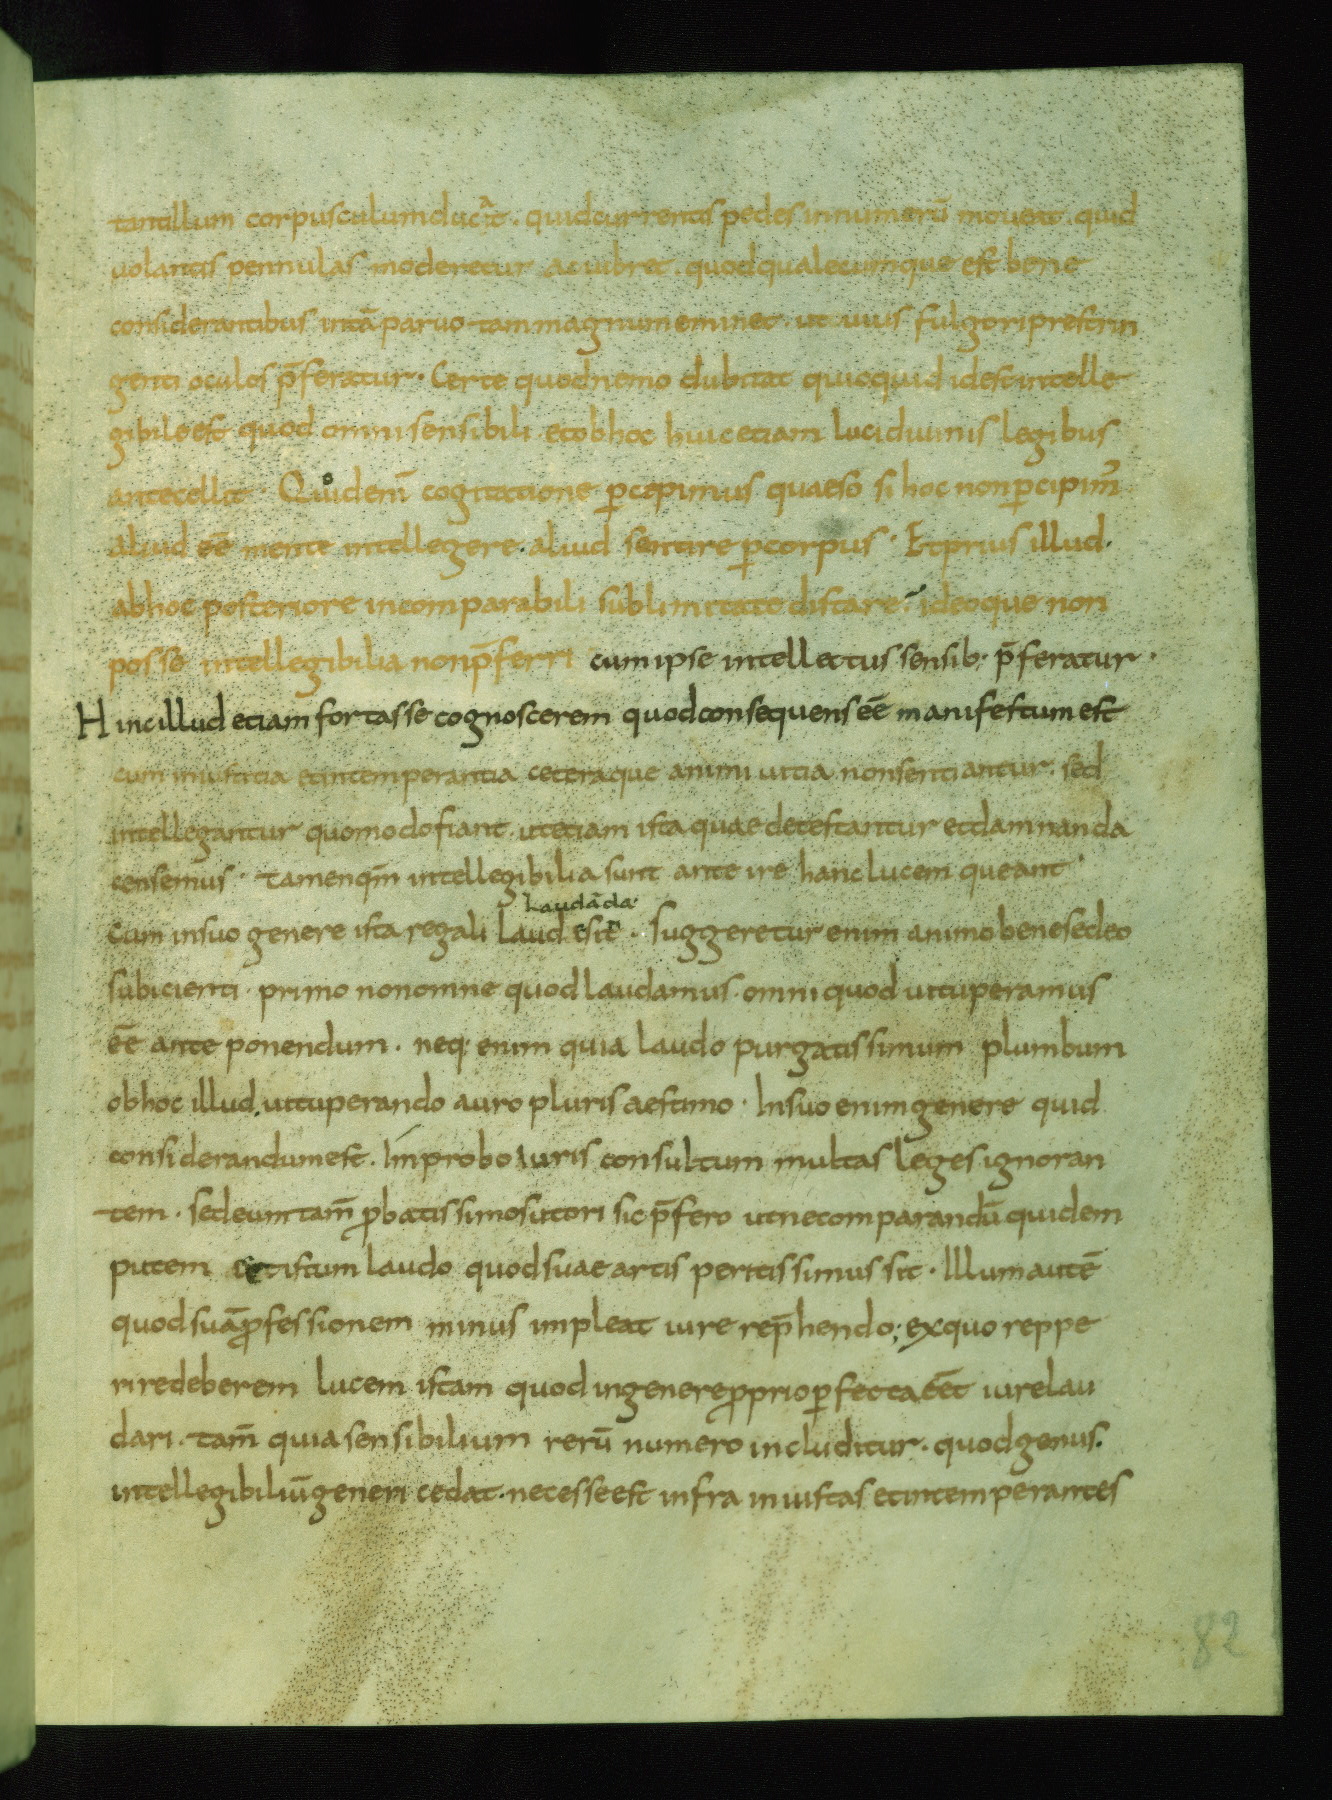 tantillum corpusculum ducat̄. quid currentis pedes innumerū moueat. quid
uolantis pennulas moderetur ac uibret. quod qualecumque est bene
considerantibus intā paruo tam magnum eminet. ut uius fulgori prestrin
genti oculos p̄feratur. Certe quod nemo dubitat quicquid idest intelle
gibile est quod omni sensibili et ob hoc huic etiam luci diuinis legibus
antecellit. Quidem̄ cogitatione ꝑcepimus quaeso si hoc non ꝑcipim᷒
aliud eē mente intellegere. aliud sentire ꝑ corpus. Et prius illud.
ab hoc posteriore incomparabili sublimitate distare. ideoque non
posse intellegibilia non p̄ferri cum ipse intellectus sensib: p̄feratur.
Hinc illud etiam fortasse cognoscerem quod consequens eē manifestum est
cum iniustitia et intemperantia ceteraque animi uitia non sentiantur. sed
intellegantur quomodo fiant. ut etiam ista quae detestantur et damnanda
censemus. tamen qm̄ intellegibilia sunt ante ire hanc lucem queant
laudāda
cum in suo genere ista regali laud esit. Suggeretur enim animo bene se deo
subicienti. primo non omne quod laudamus. omni quod uituperamus
eē ante ponendum. neq: enim quia laudo purgatissimum plumbum
ob hoc illud uituperando auro pluris aestimo. In suo enim genere quid
considerandum est. Improbo iuris consultum multas leges ignoran
tem. sed eum tam̄ ꝓbatissimo sutori sic p̄fero ut nec omparandū quidem
putem et istum laudo quod suae artis peritissimus sit. Illum autē
quod suā ꝓfessionem minus impleat iure rep̄hendo; ex quo reppe
rire deberem lucem istam quod in genere ꝓprio ꝑfecta eēt iure lau
dari. tam̄ quia sensibilium rerū numero includitur. quod genus.
intellegibiliū generi cedat. necesse est infra iniustas et intemperantes
82